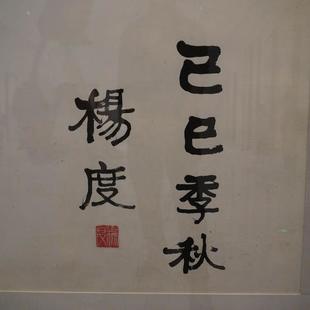 己巳季秋
楊度